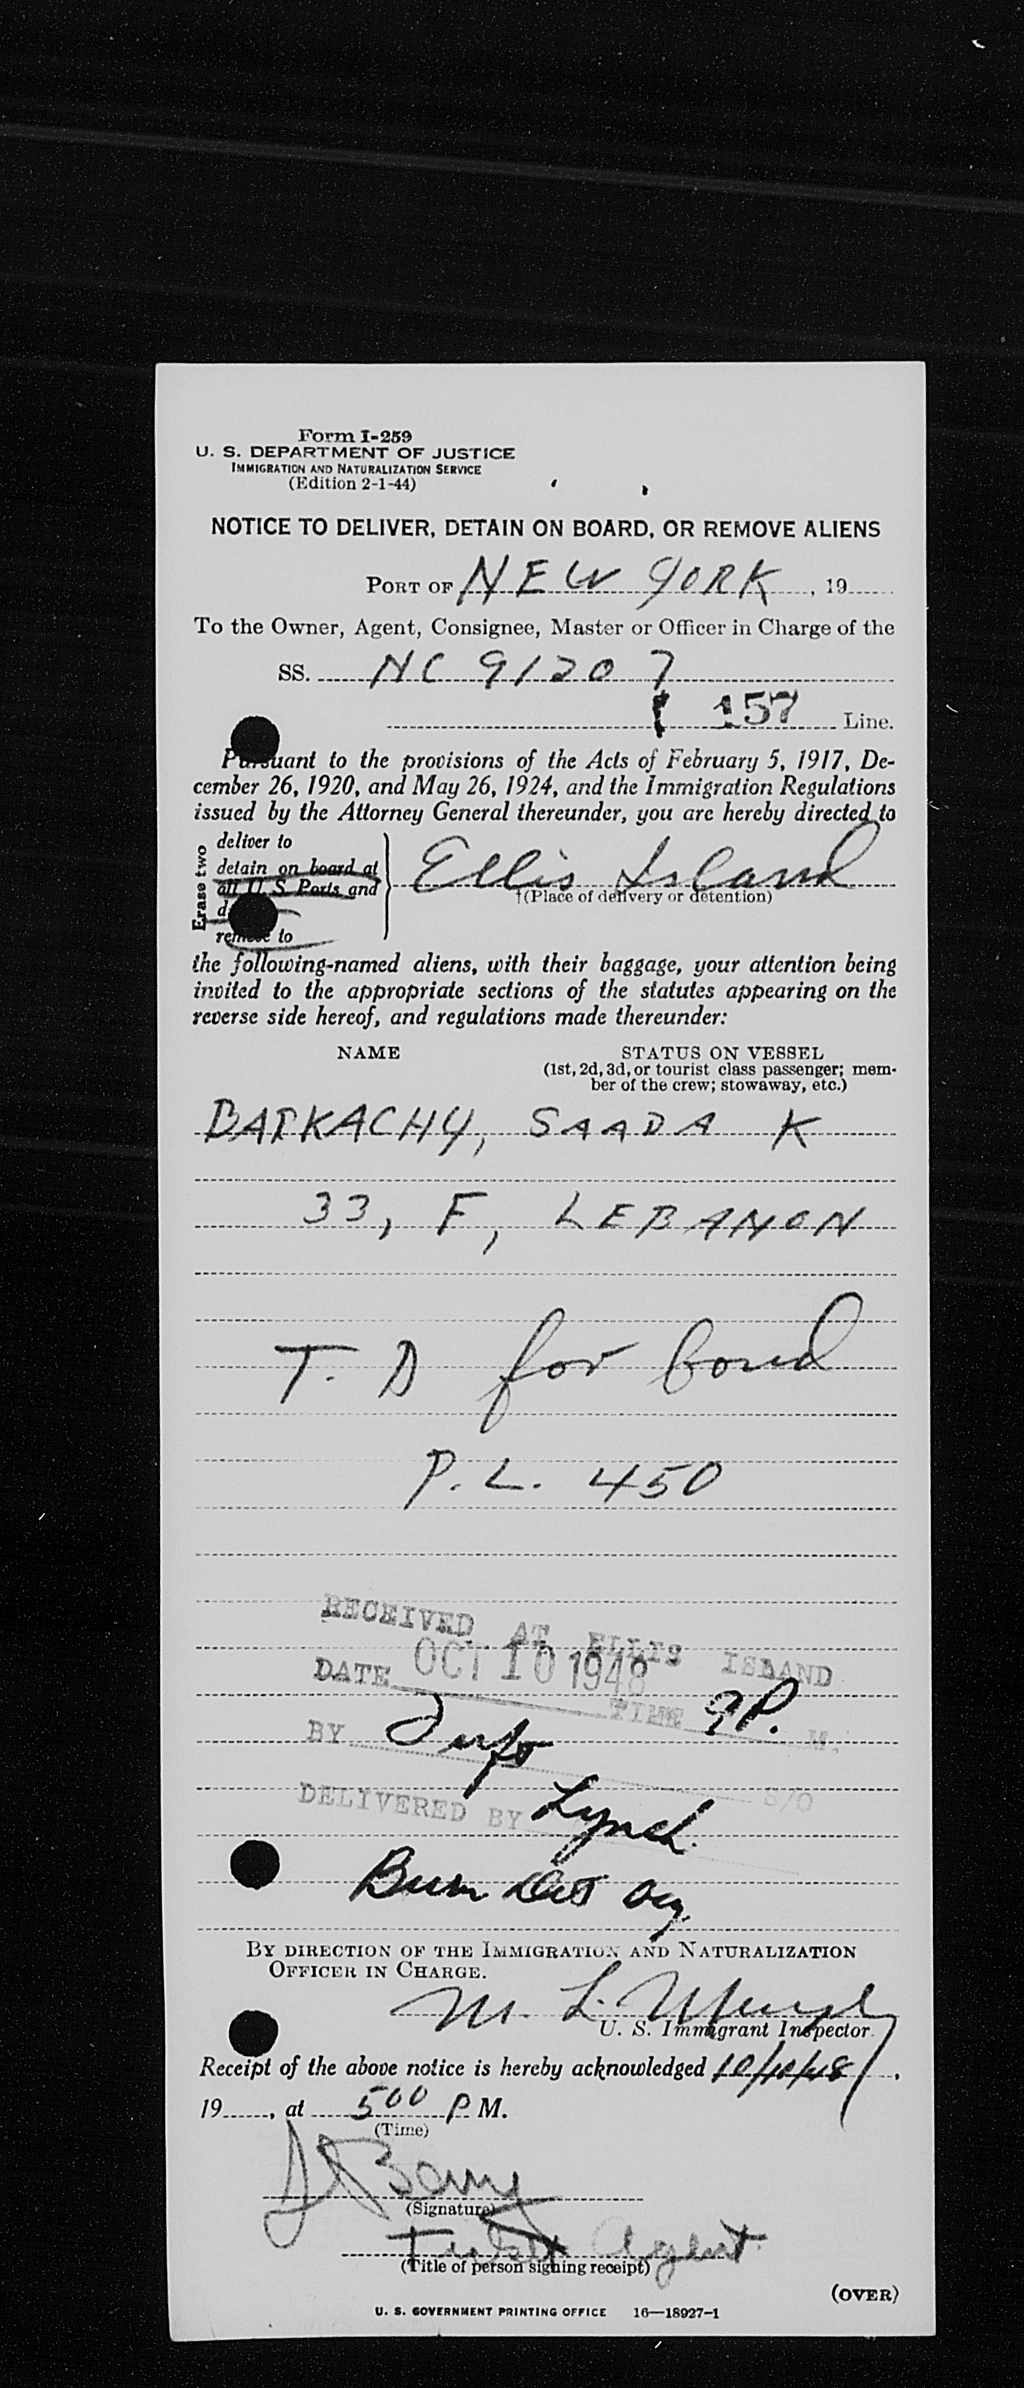 Form I-259
U. S. DEPARTMENT OF JUSTICE
IMMIGRATION AND NATURALIZATION SERVICE
(Edition 2-1-44)
NOTICE TO DELIVER, DETAIN ON BOARD, OR REMOVE ALIENS
PORT OF NEW YORK, 19
To the Owner, Agent, Consignee, Master or Officer in Charge of the
SS. NC 91207
157 Line.
Pursuant to the provisions of the Acts of February 5, 1917, De-
cember 26, 1920, and May 26, 1924, and the Immigration Regulations
issued by the Attorney General thereunder, you are hereby directed to
Erase two
deliver to
detain on board at
all U. S. Ports and
remove to
Ellis Island
†(Place of delivery or detention)
the following-named aliens, with their baggage, your attention being
invited to the appropriate sections of the statutes appearing on the
reverse side hereof, and regulations made thereunder:
NAME STATUS ON VESSEL
(1st, 2d, 3d, or tourist class passenger; mem-
ber of the crew; stowaway, etc.)
BARKACHY, SAADA K
33, F, LEBANON
T. D for bond
P. L. 450
RECEIVED AT ELLIS ISLAND
DATE OCT 10 1948 TIME 9 P. M.
BY S/O
DELIVERED BY Lynch
BY DIRECTION OF THE IMMIGRATION AND NATURALIZATION
OFFICER IN CHARGE.
M. L. Murphy
U. S. Immigrant Inspector.
Receipt of the above notice is hereby acknowledged 10/10/48,
19, at 500 P M.
(Time)
(Signature)
Ticket Agent.
(Title of person signing receipt)
(OVER)
U. S. GOVERNMENT PRINTING OFFICE 16—18927-1